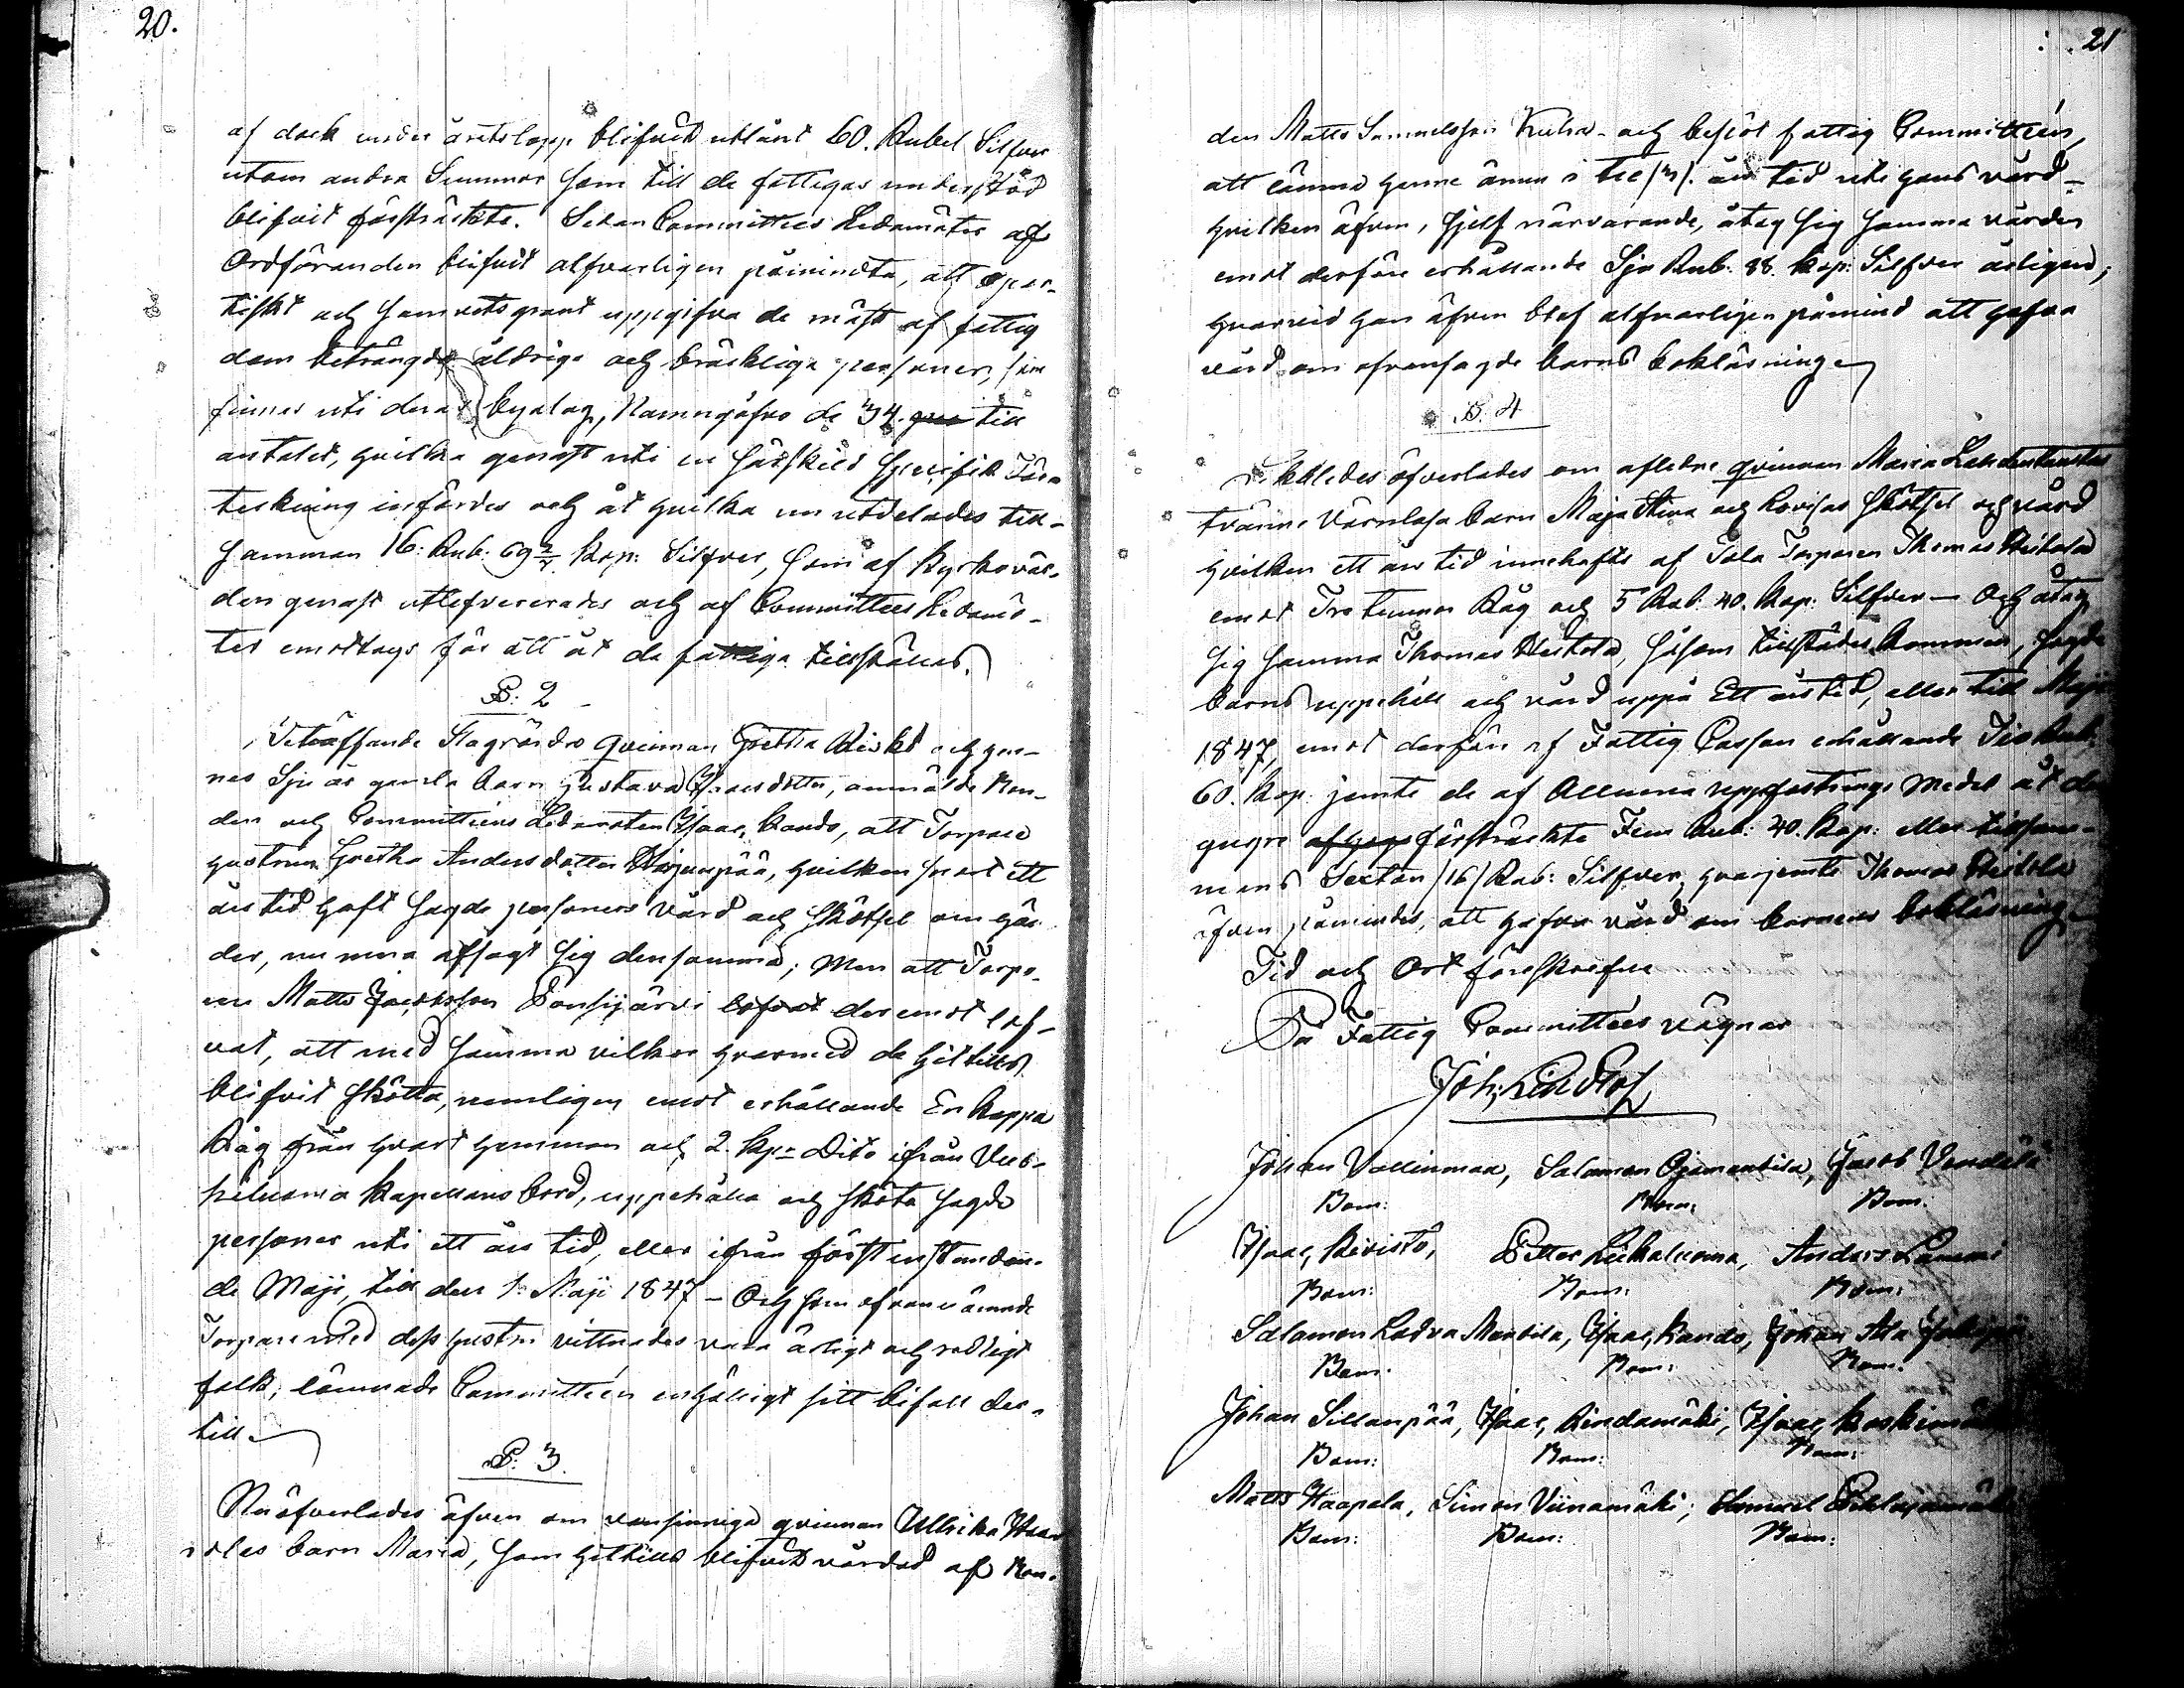 20.
af dock under åretslopp blifvit utlånt 60. Rubel Silfver
utom andra Summor som till de fattigas understöd
blifvit försträckte. Sedan Committées Ledamöter af
Ordföranden blifvit alfvarligen påminda, att opar-
tiskt och samvetsgrant uppgifva de mäst af fattig
dom beträngda åldriga och bräckliga personer, som
finnes uti deras byalag, Namngåfvo de 34. till
antalet, hvilka genast uti en särskild specifik För-
teckning infördes och åt hvilka nu utdelades till-
hamman 16: Rub. 69 2/7 Kop: Silfver, som af Kyrkovär-
den genast utlefvererades och af Committees Ledamö-
ter emottogs för att åt de fattiga tillställas.
§. 2
Beträffande Slagrörda Qvinnan Gretha Risku och hen-
nes Sju år gamla barn Gustava Isaacsdotter, anmälde Bon-
den och Committéens Ledamoten Isaac Kando, att Torpare
hustrun Gretha Andersdotter Harjunpää, hvilken snart ett
års tid haft sagde personers vård och skötsel om hän
der, nu mera afsagt sig densamma; Men att Torpa-
ren Matts Jacobsson Pansujärvi lofvat deremot lof-
vat, att med samma vilkor hvarmed de hittills
blifvit skötta, nemligen emot erhållande En kappa
Råg från hvart hemman och 2. Kpr Dito ifrån
Kapellans bord, uppehålla och sköta sagde
personer uti ett års tid, eller ifrån först instundan-
de Maji, till den 1. Maji 1847 - Och som ofvannämnde
Torpare med dess hustru vittnades vara ärligt och redligt
folk, lämnade Committéen enhälligt sitt bifall der-
till.
§. 3.
Nu öfverlades äfven om vansinniga qvinnan Ullrika
barn Maria, som hittills blifvit vårdad af Bon-
21
den Matts Samuelsson och beslöt fattig Committéen,
att lämna henne ännu i tre /3/. års tid uti hans vård -
hvilken äfven, sjelf närvarande, åtog sig samma vården
emot derföre erhållande Sju Rub: 88. kop: Silfver årligen;
hvarvid han äfven blef alfvarligen påmind att hafva
vård om ofvansagde barns bokläsning
§. 4
öfverlades om aflidne qvinnan Maria
tvänne Värnlösa barn Maja Stina och Lovisas skötsel och vård
hvilken ett års tid innehafts af Torparen Thomas Heikola
emot Tre tunnor Råg och 5 Rub. 40. Kop: Silfver — Och åtog
sig samma Thomas Heikola, såsom tillstädes kommen, sagde
barns uppehåll och vård uppå Ett års tid, eller till Maji
1847, emot derföre af Fattig Cassan erhållande Tio Rub:
60. Kop: jemte de af Allmänna uppfostrings Medel åt de
försträckte Fem Rub: 40. Kop: eller tillsam-
mans Sexton /16/ Rub: Silfver, hvarjemte Thomas Heikola
äfven påmindes, att hafva vård om barnens bokläsning
Tid och Ort föreskrefne
På Fattig Committées vägnar
Joh: Lindlöf
Johan Vallinmaa, Salamon Ojamantila, Jacob Vendelä
Bom: Bom: Bom:
Isaac Kivistö, Petter Leikaluoma, Anders Lammi
Bom: Bom: Bom:
Salamon Latva Mantila, Isaac Kando, Johan Ala
Bom: Bom: Bom:
Johan Sillanpää, Isaac Rindamäki, Isaac Koskimäki
Bom: Bom: Bom:
Matts Haapala, Simon Viinamäki, Samuel
Bom: Bom: Bom: